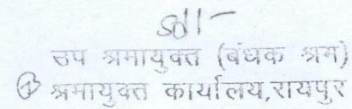 sd/-
उप श्रमायुक्त (बंधक श्रम)
श्रमायुक्त कार्यालय, रायपुर